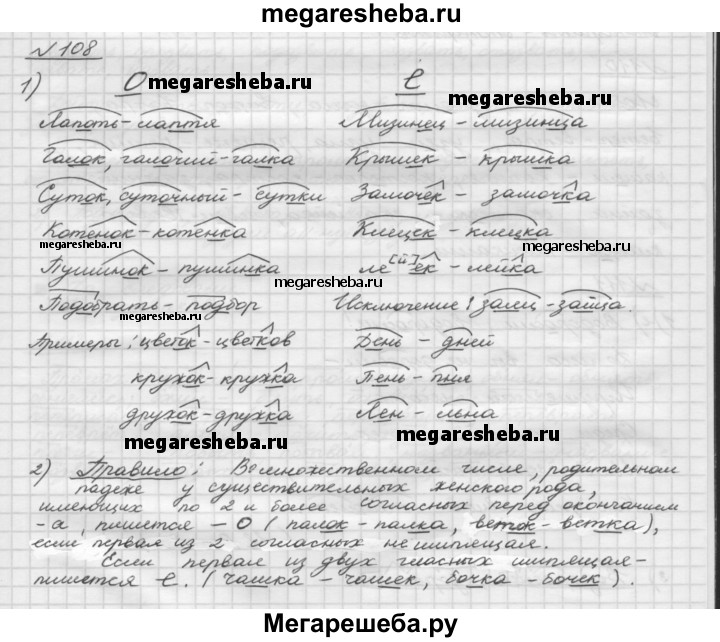 megaresheba.ru
№108
1) О megaresheba.ru е
megaresheba.ru
Лапоть-лаптя Мизинец - мизинца
Галок, галочий-галка Крышек - крышка
Суток, суточный - сутки Замочек - замочка
Котёнок-котёнка Клецек - клецка
megaresheba.ru megaresheba.ru
Пушинок - пушинка ле[й']ек - лейка
Подобрать - подбор Исключение: заяц-зайца.
megaresheba.ru
Примеры: цветок-цветков День - дней
кружок-кружка Пень - пня
дружок-дружка Лён - льна
megaresheba.ru megaresheba.ru
2) Правило: Во множественном числе, родительном
падеже у существительных женского рода,
имеющих по 2 и более согласных перед окончанием
-а, пишется - О (палок-палка, веток-ветка),
если первая из 2 согласных не шипящая.
Если первая из двух гласных шипящая-
пишется е. (чашка - чашек, бочка - бочек).
Мегарешеба.ру